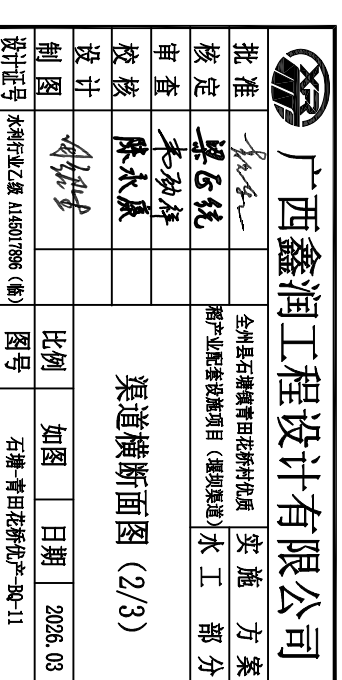 XR 广西鑫润工程设计有限公司
批准
全州县石塘镇青田花桥村优质
稻产业配套设施项目（堰坝渠道）
实施 方案
水工 部分
核定
审查
校核 陈永康
设计
制图
渠道横断面图（2/3）
比例 如图 日期 2026.03
设计证号 水利行业乙级 A145017896（临）
图号 石塘-青田花桥优产-BQ-11